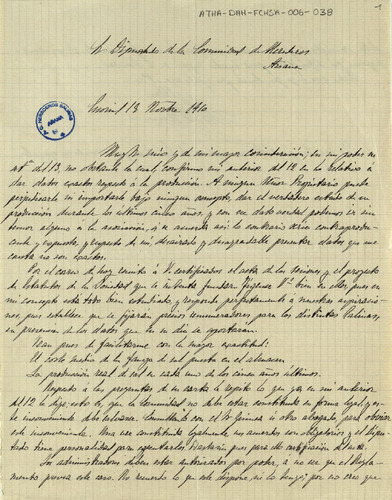 ATHA-DAH-FCHSA-006-038
1
Sr Diputado de la Comunidad de Herederos
Añana
13 Novbre 1910
Muy Sr mio y de mi mayor consideracion: en mi poder su
atta del 13, no obstante la cual confirmo mi anterior del 12 en lo relativo á
dar datos exactos respecto á la producción. A ningun otro Propietario puede
perjudicarle ni importarle bajo ningun concepto, dar el verdadero estado de su
producción durante los ultimos cinco años, y con ese dato verdad podemos ir sin
temor alguno á la asociación, si se acuerda asi lo contrario seria contraprodu-
cente y expuesto, y respecto de mi, desairado y desagradable presentar datos que me
consta no son exactos.
Por el correo de hoy remito á V. certificados el acta de las sesiones y el proyecto
de Estatutos de la Sociedad que se intenta fundar, fijense Vs bien en ellos, pues en
mi concepto está todo bien estudiado y responde perfectamente á nuestras aspiracio-
nes, pues establece que se fijarán precios remuneradores para las distintas Salinas,
en presencia de los datos que en su dia se aportaran.
Han pues de facilitarme con la mayor exactitud:
El coste medio de la fanega de sal puesta en el almacen
La producción real de sal en cada uno de los cinco años últimos.
Respecto á las preguntas de su carta le repito lo que ya en mi anterior
del 12 le dije esto es, que la Comunidad no debe estar constituida en forma legal, y es-
te inconveniente debe salvarse. Consúltenlo con el Sr Guinea ú otro abogado para obviar
este inconveniente. Una vez constituida legalmente sus acuerdos son obligatorios y el Dipu-
tado tiene personalidad para ejecutarlos. Bastaría pues para ello certificación del acta.
Los administradores deben estar autorizados por poder, á no ser que el Regla-
mento prevea este caso. No recuerdo lo que este dispone, ni lo tengo, por no creer que